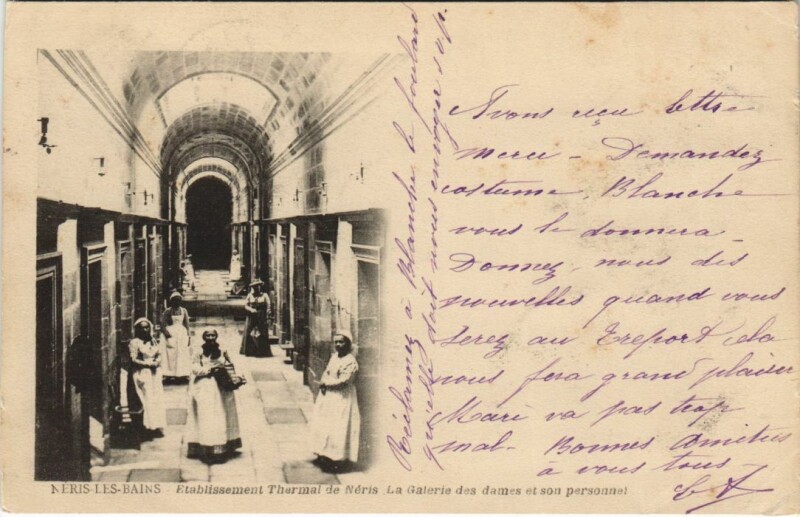 Avons reçu lettre
merci - Demandez
costume, Blanche
vous le donnera -
Donnez, nous des
nouvelles quand vous
serez au Treport cela
nous fera grand plaisir
Mari va pas trop
mal - Bonnes Amitiés
à vous tous -
Réclamez à Blanche le foulard
qu'elle doit nous envoyer s.v.p.
NÉRIS-LES-BAINS - Etablissement Thermal de Néris La Galerie des dames et son personnel